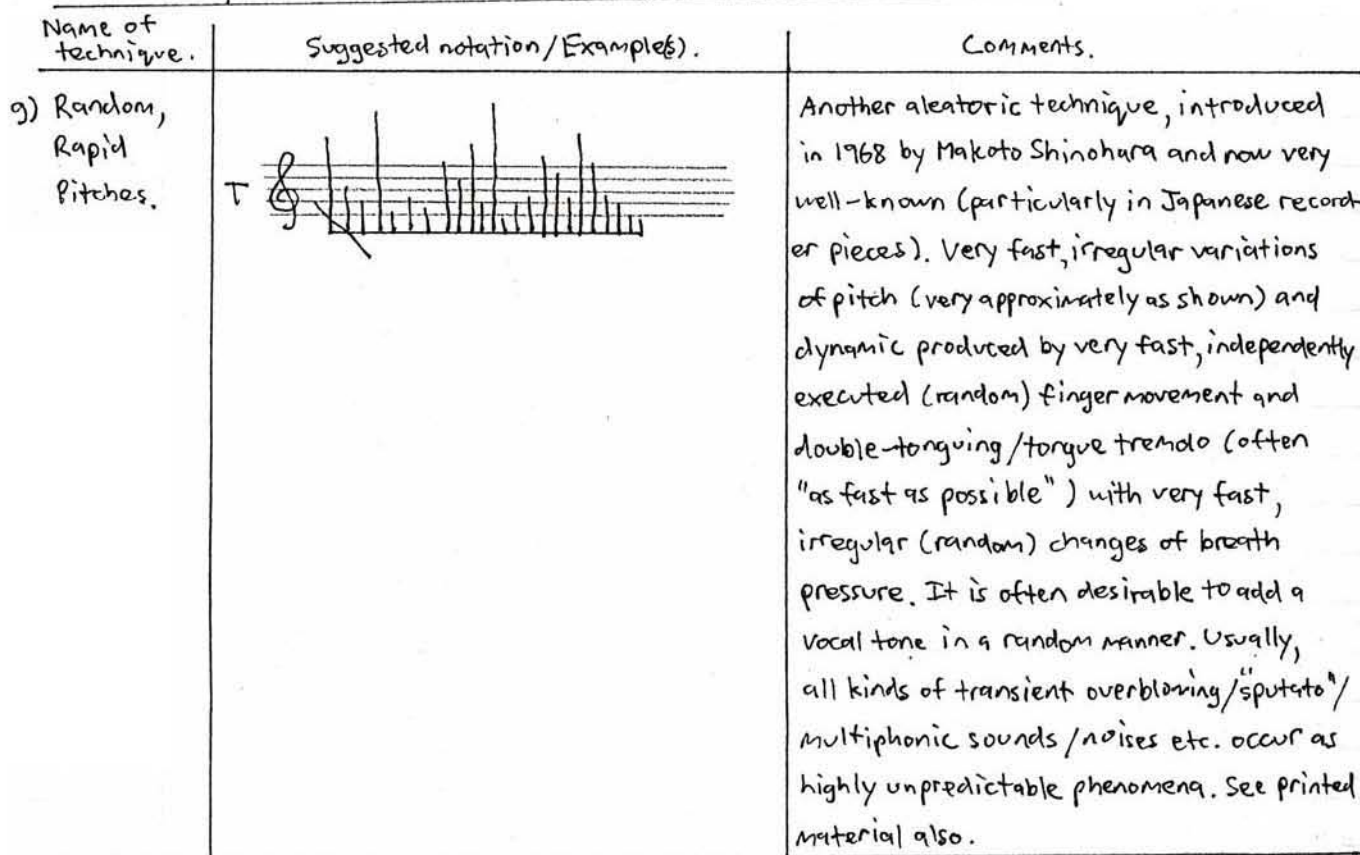 Name of
technique.
Suggested notation/Example(s).
Comments.
g) Random,
Rapid
Pitches.
T
Another aleatoric technique, introduced
in 1968 by Makoto Shinohara and now very
well-known (particularly in Japanese record-
er pieces). Very fast, irregular variations
of pitch (very approximately as shown) and
dynamic produced by very fast, independently
executed (random) finger movement and
double-tonguing/tongue tremolo (often
"as fast as possible") with very fast,
irregular (random) changes of breath
pressure. It is often desirable to add a
vocal tone in a random manner. Usually,
all kinds of transient overblowing/"sputato"/
multiphonic sounds/noises etc. occur as
highly unpredictable phenomena. See printed
material also.